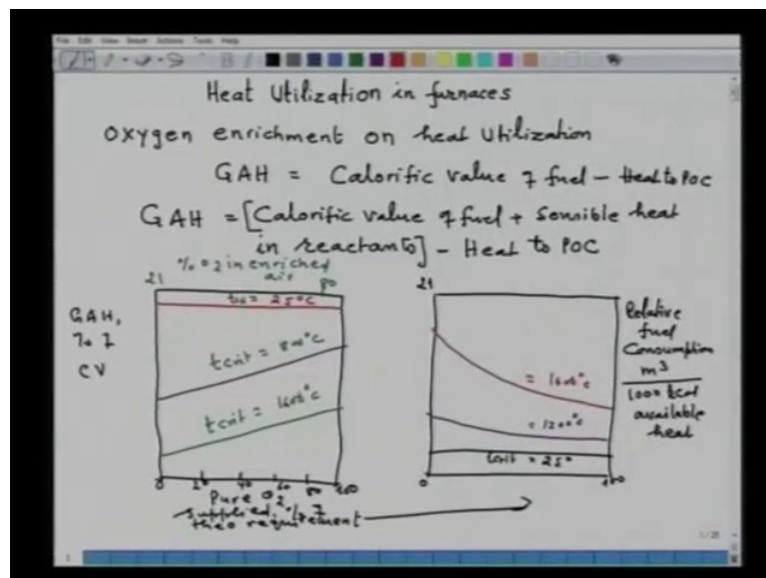 File Edit View Insert Actions Tools Help
Heat Utilization in furnaces
Oxygen enrichment on heat Utilization
GAH = Calorific value of fuel - Heat to POC
GAH = [Calorific value of fuel + Sensible heat
in reactants] - Heat to POC
% O2 in enriched
air
21 80
GAH,
% of
CV
= 25°C
tcrit = 800°C
tcrit = 1600°C
0 20 40 60 80 100
Pure O2
supplied, % of
theo requirement
21
= 1600°C
= 1200°C
tcrit = 25°
0 100
Relative
fuel
Consumption
m3
1000 kcal
available
heat